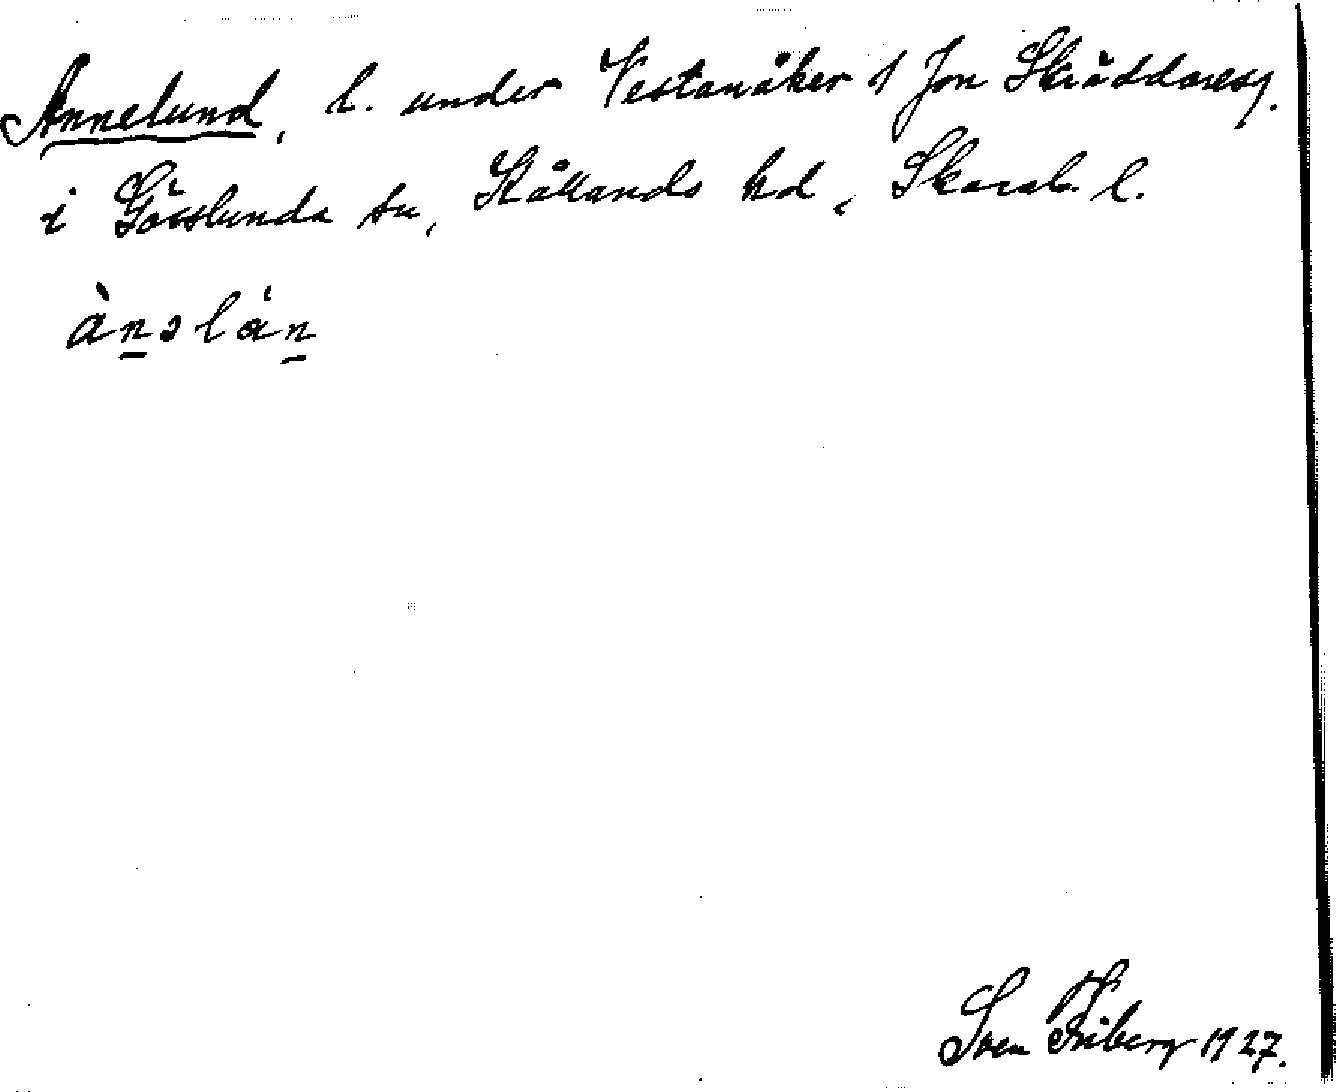 Annelund, l. under Vestanåker 1 Jon Skräddaresg.
i Gösslunda sn, Kållands hd, Skarab. l.
ànəlán
Sven Friberg 1927.